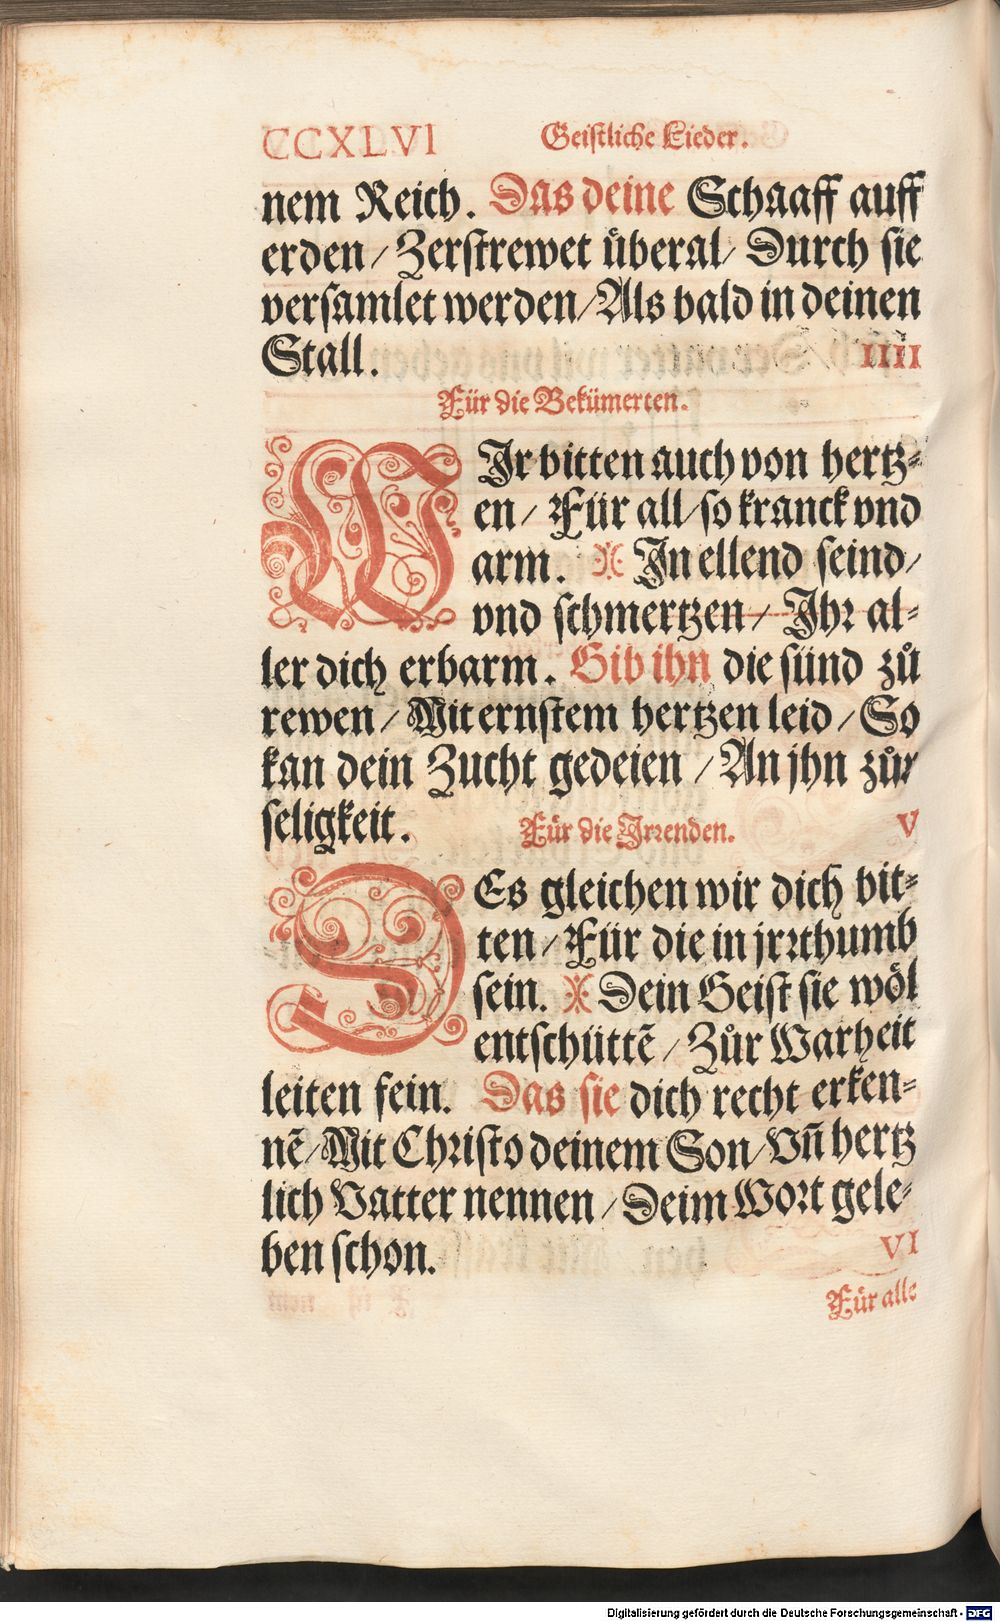 CCXLVI Geistliche Lieder.
nem Reich. Das deine Schaaff auff
erden / Zerstrewet überal / Durch sie
versamlet werden / Als bald in deinen
Stall. IIII
Für die Bekümerten.
WIr bitten auch von hertz-
en / Für all / so kranck vnd
arm. In ellend seind /
vnd schmertzen / Ihr al-
ler dich erbarm. Gib ihn die sünd zů
rewen / Mit ernstem hertzen leid / So
kan dein Zucht gedeien / An jhn zůr
seligkeit. Für die Irrenden. V
DEs gleichen wir dich bit-
ten / Für die in jrrthumb
sein. Dein Geist sie wöl
entschüttẽ / Zůr Warheit
leiten fein. Das sie dich recht erken-
nẽ / Mit Christo deinem Son / Vñ hertz
lich Vatter nennen / Deim Wort gele-
ben schon. VI
Für alle
Digitalisierung gefördert durch die Deutsche Forschungsgemeinschaft - DFG